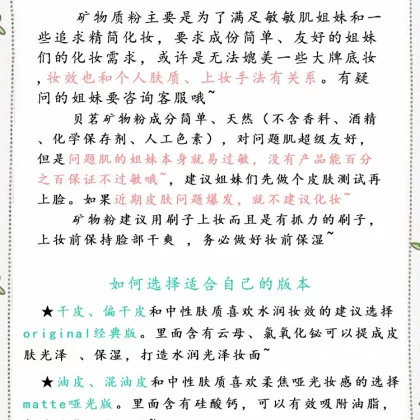 矿物质粉主要是为了满足敏敏肌姐妹和一
些追求精简化妆，要求成份简单、友好的姐妹
们的化妆需求，或许是无法媲美一些大牌底妆
,妆效也和个人肤质、上妆手法有关系。有疑
问的姐妹要咨询客服哦~
贝茗矿物粉成分简单、天然（不含香料、酒精
、化学保存剂、人工色素），对问题肌超级友好，
但是问题肌的姐妹本身就易过敏，没有产品能百分
之百保证不过敏哦~，建议姐妹们先做个皮肤测试再
上脸。如果近期皮肤问题爆发，就不建议化妆~
矿物粉建议用刷子上妆而且是有抓力的刷子，
上妆前保持脸部干爽 ，务必做好妆前保湿~
如何选择适合自己的版本
★干皮、偏干皮和中性肤质喜欢水润妆效的建议选择
original经典版。里面含有云母、氯氧化铋可以提成皮
肤光泽 、保湿，打造水润光泽妆面~
★油皮、混油皮和中性肤质喜欢柔焦哑光妆感的选择
matte哑光版。里面含有硅酸钙，可以有效吸附油脂，